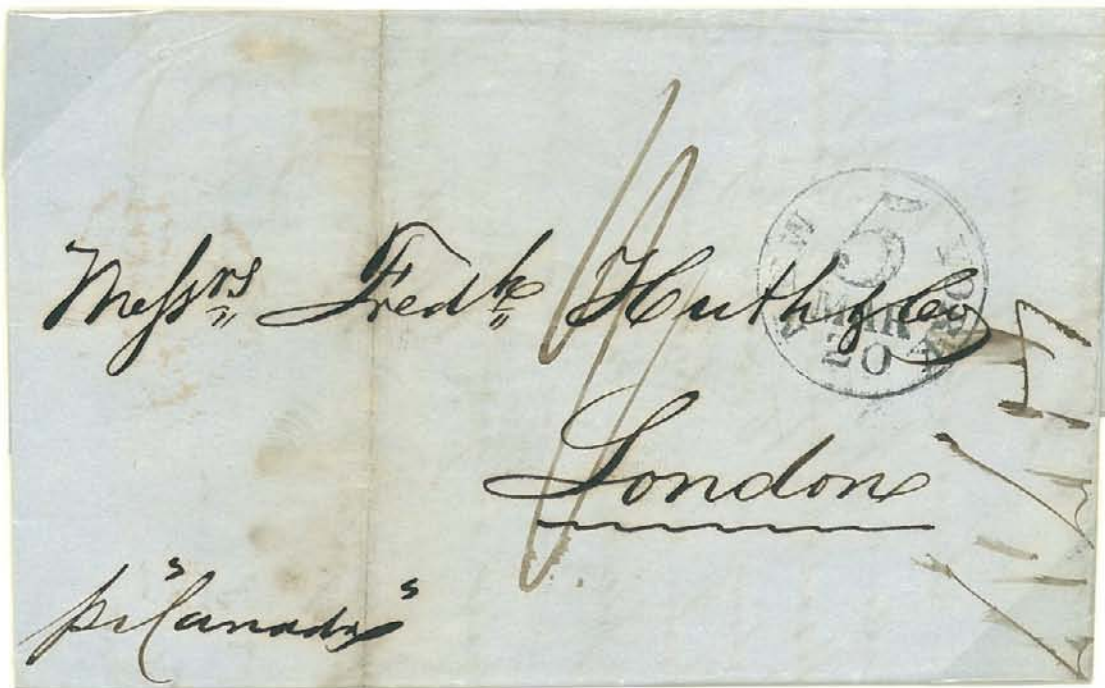 Messrs Fredk Huth & Co
London
pr "Canada"
NEW YORK
5
MAR
20